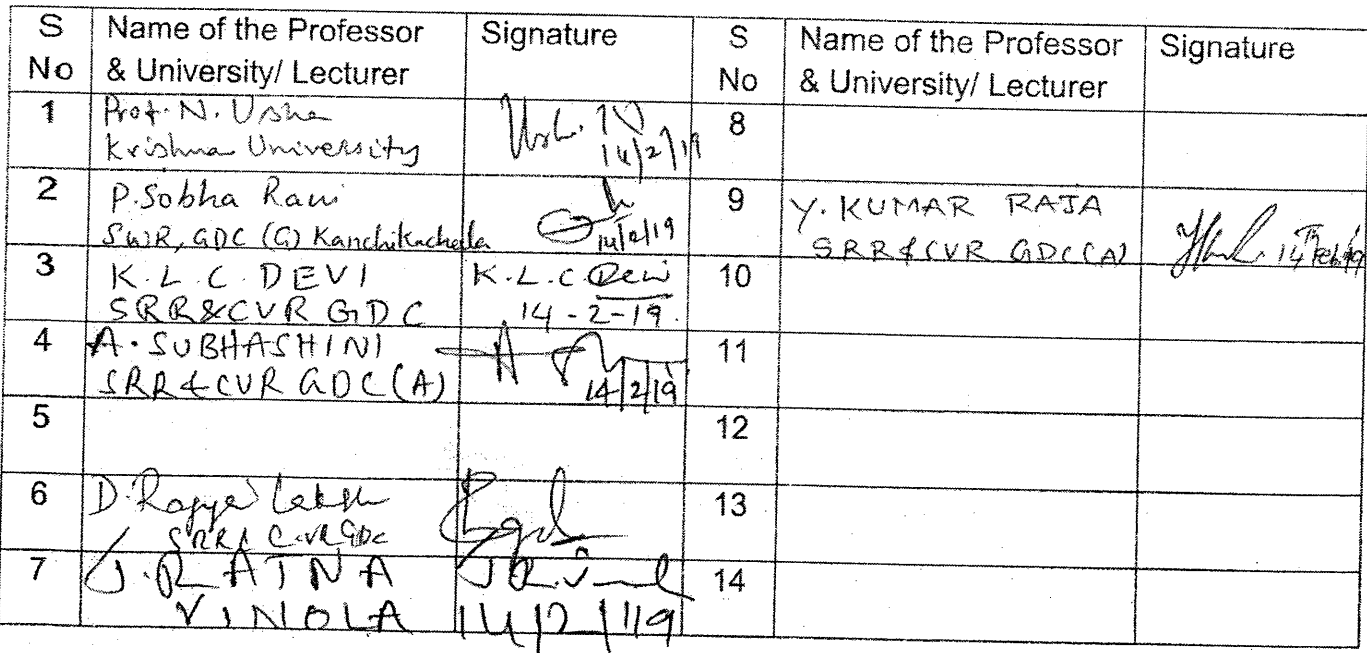 S No | Name of the Professor & University/ Lecturer | Signature | S No | Name of the Professor & University/ Lecturer | Signature
1 | Prof. N. Usha | Usha. N | 8
Krishna University | 14/2/19
2 | P. Sobha Rani | 9 | Y. KUMAR RAJA
SWR, GDC (G) Kanchikacherla | 14/2/19 | SRR & CVR GDC(A) | 14th Feb 19
3 | K. L. C. DEVI | K. L. C. Devi | 10
SRR&CVR GDC | 14-2-19.
4 | A. SUBHASHINI | A | 11
SRR & CVR GDC (A) | 14/2/19
5 | 12
6 | D. Rajya Laksh | 13
SRR & CVR GDC
7 | J. RATNA | 14
VINOLA | 14/2/19